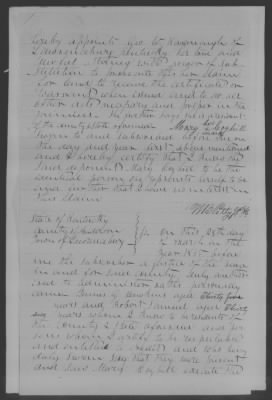 hereby appoint Geo W Kavanaugh of
Lawrenceburg Kentucky her true and
lawful Attorney with power of Sub
stitution to prosecute this her claim
for land to receive the certificate or
Warrant when issued and to do all
other acts necessary and proper in the
premises. She further says she is a resident
of the county & state aforesaid Mary her Coghill
Sworn to and subscribed mark
on the day and year first above mentioned
and I hereby certify that I know the
said deponent Mary Coghill to be the
identical person she represents herself to be
and further that I have no interest in
this claim
State of Kentucky
County of Anderson
Town of Lawrenceburg
On this 28th day
of March in the
year 1855 before
me the subscriber a justice of the peace
in and for said county duly author
ized to administer oaths personally
came James Hawkins aged thirty five
years and Robert aged thirty
years whom I know to be residents of
the County & State aforesaid and per
sons whom I certify to be respectable
and entitled to credit and who being
duly sworn say that they were present
and saw Mary Coghill execute the